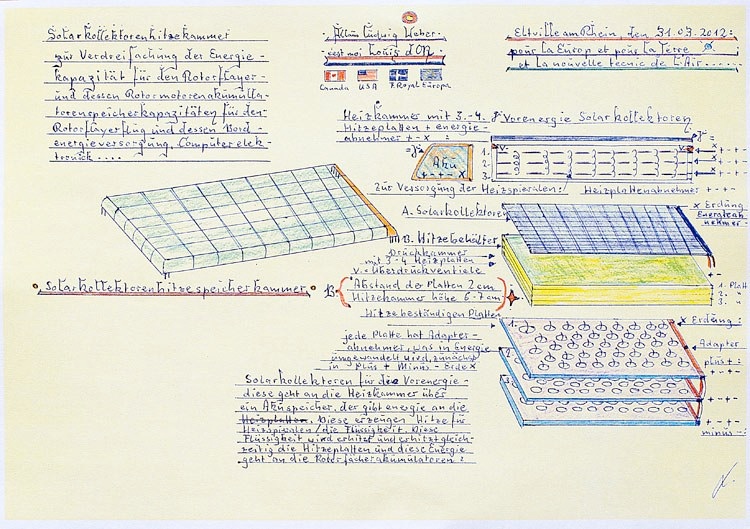 Solarkollektorenhitzekammer
zur Verdreifachung der Energie-
kapazität für den Rotorflayer-
und dessen Rotormotorenakumulla-
torenspeicherkapazitäten für den-
Rotorflayerflug und dessen Bord-
energieversorgung, Computerelek-
tronick....
Albus Ludwig Weber
c'est moi Louis d'Or
Canada USA Royal Europa
Eltville am Rhein, den 31.07.2012:
pour la Europ et pour la Terre
et la nouvelle tecnic de L'Air.....
Heizkammer mit 3.-4.
Hitzeplatten + energie-
abnehmer + - x =
Vorenergie Solarkollektoren
Akü
+ - + - x
v.
v.
1.
2.
3.
+ - x
+ - x
+ - x
Zur Versorgung der Heizspieralen:/
Heizplattenabnahme: + - + -
A. Solarkollektoren
x Erdüng
Energieab-
nehmer-
B. Hitzebehälter
Drückkammer
mit 3-4 Heizplatten
v. Überdrückventiele
B.
Abstand der Platten 2cm
Hitzekammer höhe 6-7cm
Hitzebeständigen Platten
+ -
1. Platt
2. "
3. "
Solarkollektorenhitzespeicherkammer
jede Platte hat Adapter-
abnehmer, was in Energie
ümgewandelt wird, zunächst
in plüs + Minüs - Erde x
1.
2.
3.
x Erdüng:
Adapter
plüs +:
+ - + -
+ - + -
+ - + -
minüs -:
Solarkollektoren für die Vorenergie-
diese geht an die Heizkammer über
ein Aküspeicher, der gibt energie an die
Heizplatten. Diese erzeugen Hitze für
Heizspieralen/die Flüssigkeit. Diese
Flüssigkeit wird erhitzt und erhitzt gleich-
zeitig die Hitzeplatten und diese Energie
geht an die Rotorfacherakümülatoren: